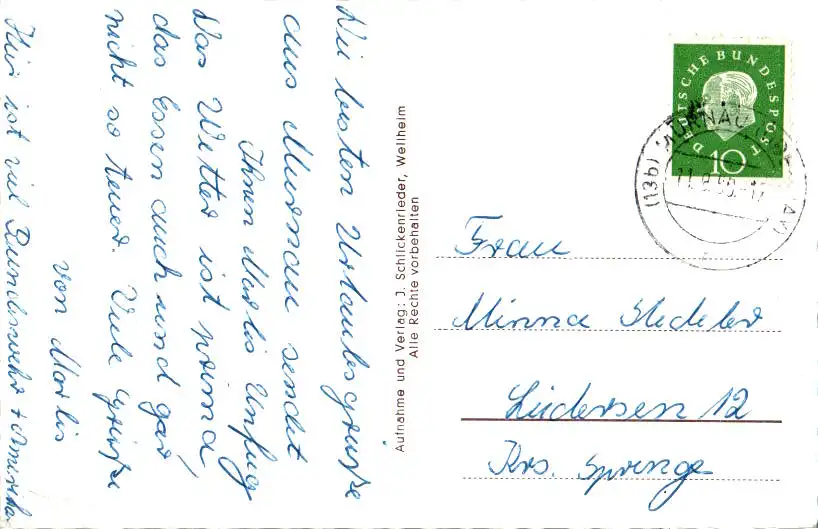 Die besten Urlaubsgrüße
aus Murnau sendet
Ihnen Marlis Unfug
Das Wetter ist prima,
das Essen auch und gar
nicht so teuer. Viele Grüße
von Marlis
Hier ist viel Bundeswehr +
Aufnahme und Verlag: J. Schlickenrieder, Weilheim
Alle Rechte vorbehalten
DEUTSCHE BUNDESPOST
10
(13b) MURNAU
Frau
Minna
Lüdersen 12
Krs. Springe